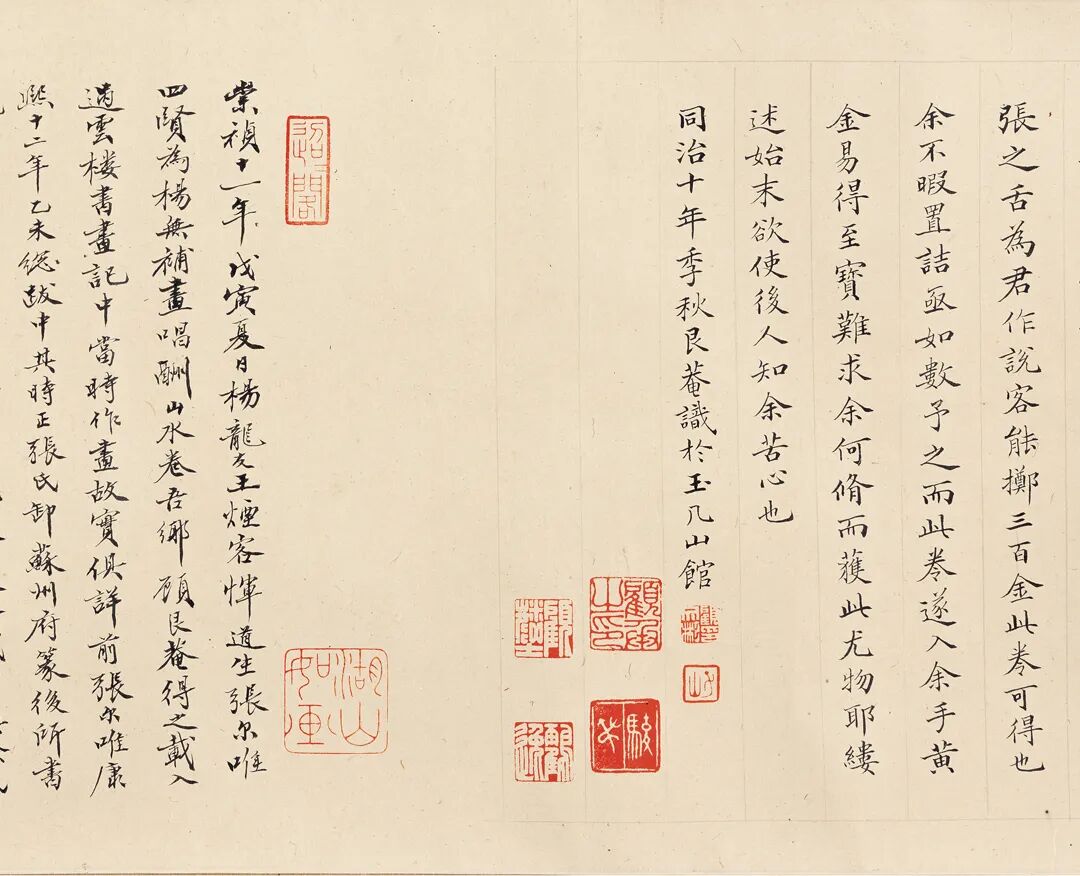 張之舌為君作說客能擲三百金此卷可得也
余不暇置詰亟如數予之而此卷遂入余手黃
金易得至寶難求余何脩而獲此尤物耶縷
述始末欲使後人知余苦心也
同治十年季秋艮菴識於玉几山館
湖山如画
崇禎十一年戊寅夏日楊龍友王煙客惲道生張尔唯
四賢為楊無補畫唱酬山水卷吾鄉顧艮菴得之載入
過雲楼書畫記中當時作畫故實俱詳前張尔唯康
熙十二年乙未總跋中其時正張氏卸蘇州府篆後所書